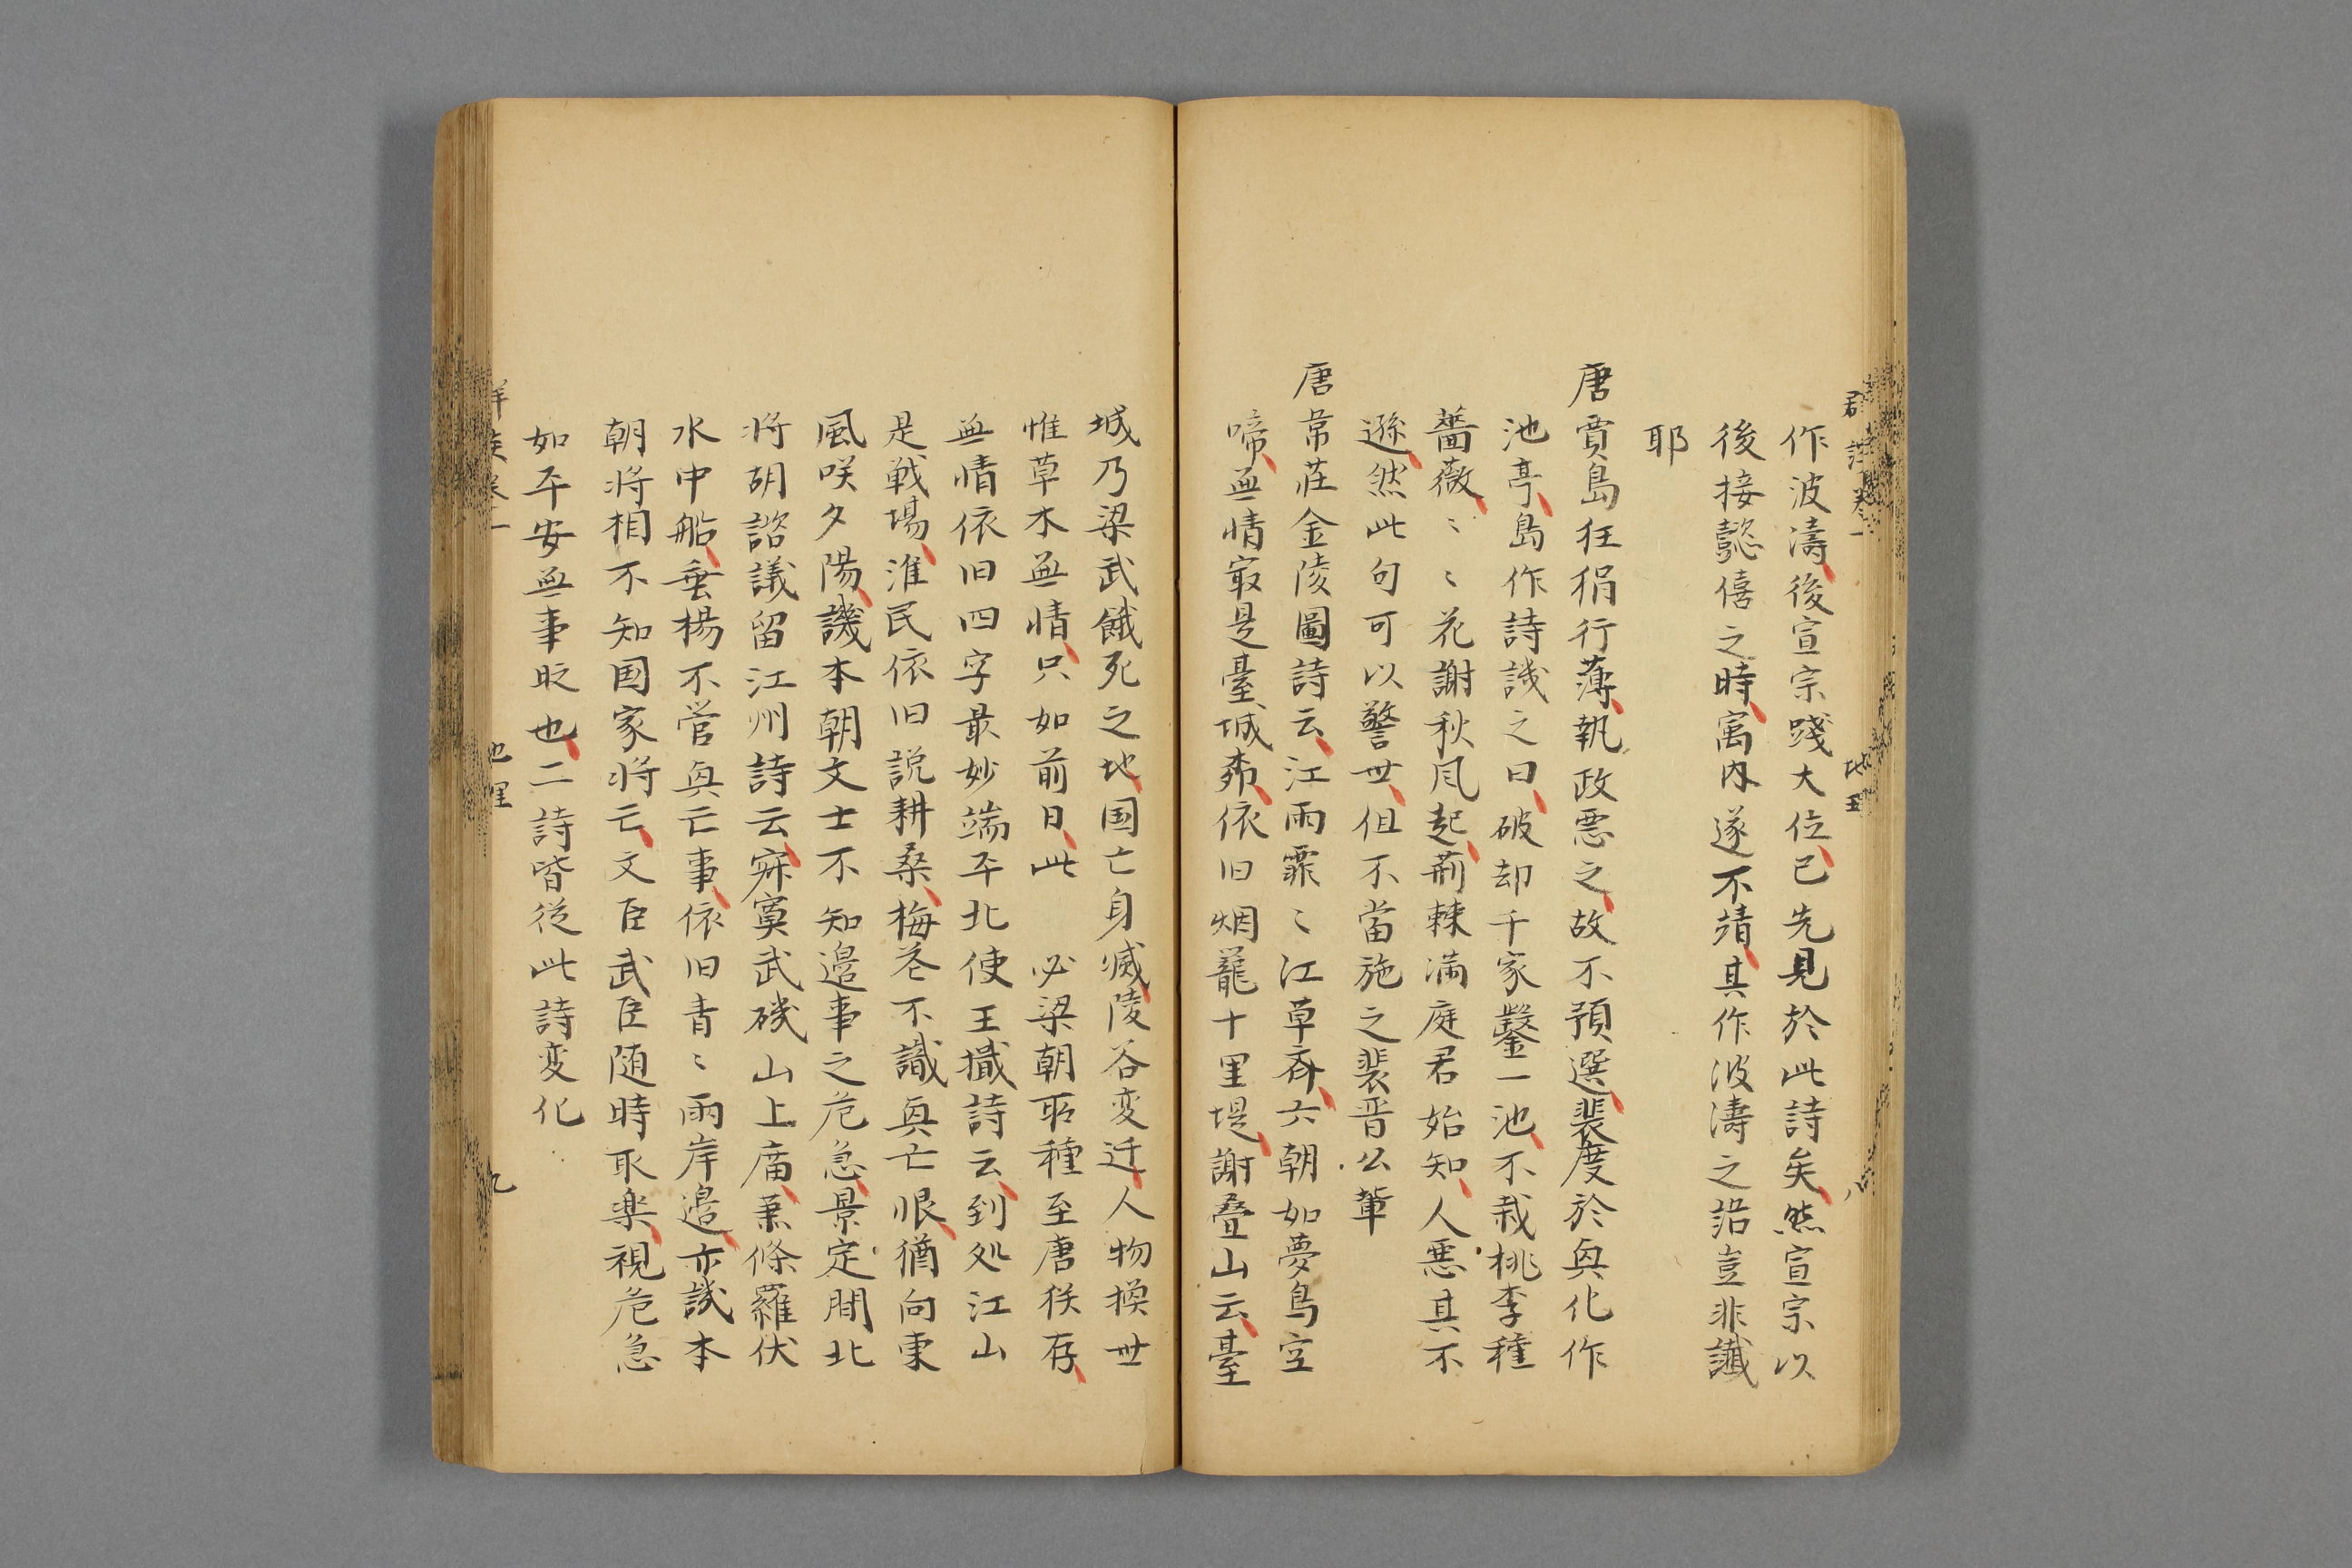 作波濤後宣宗踐大位已先見於此詩矣然宣宗以
後接懿僖之時寓内遂不靖其作波濤之語豈非讖
耶
唐賈島狂狷行薄執政悪之故不預選裴度於興化作
池亭島作詩譏之曰破却千家鑿一池不栽桃李種
薔薇〻〻花謝秋風起荊棘満庭君始知人悪其不
遜然此句可以警世但不當施之裴晋公輩
唐韋荘金陵圖詩云江雨霏〻江草斉六朝如夢鳥空
啼無情最是臺城柳依旧烟籠十里堤謝疊山云臺
城乃梁武餓死之地国亡身滅陵谷変迁人物換世
惟草木無情只如前日此 必梁朝所種至唐猶存
無情依旧四字最妙端平北使王檝詩云到処江山
是戦場淮民依旧説耕桑梅花不識興亡恨猶向東
風咲夕陽譏本朝文士不知邉事之危急景定間北
将胡諮議留江州詩云寂寞武磯山上廟蕭條羅伏
水中船垂楊不管興亡事依旧青〻両岸邉亦譏本
朝将相不知国家将亡文臣武臣随時取楽視危急
如平安無事时也二詩皆従此詩変化
卷一
地理
八
地理
九